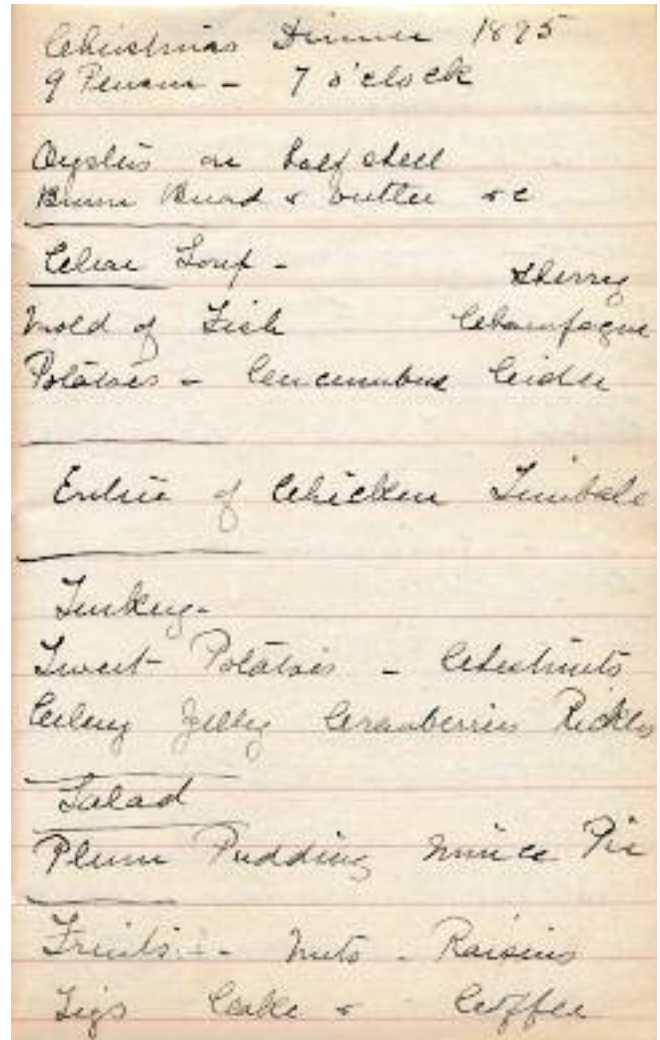 Christmas Dinner 1895
9 Persons - 7 o'clock
Oysters on half shell
Brown Bread & butter &c
Clear Soup - Sherry
Mold of Fish Champagne
Potatoes - Cucumbers Cider
Entrée of Chicken Timbale
Turkey -
Sweet Potatoes - Chestnuts
Celery Jelly Cranberries Pickles
Salad
Plum Pudding Mince Pie
Fruits - Nuts - Raisins
Figs Cake & Coffee